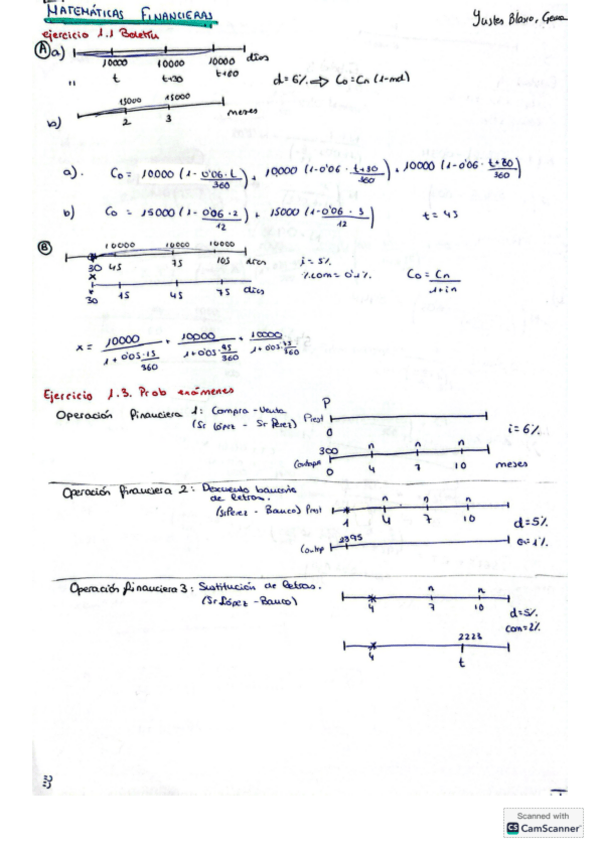 MATEMÁTICAS FINANCIERAS
ejercicio 1.1 Boletín
A a)
10000 10000 10000 días
t t+30 t+60
d=6% ⇒ Co=Cn (1-nd)
15000 15000
b) 2 3 meses
a). Co= 10000 (1- 0'06·t/360) + 10000 (1-0'06· t+30/360) + 10000 (1-0'06· t+80/360)
b) Co = 15000 (1- 0'06·2/12) + 15000 (1-0'06·3/12) t=43
B
10000 10000 10000
30 45 75 105
i=5%
%com= 0'1%
Co= Cn/1+in
x
30 15 45 75 días
x= 10000/1+0'05·15/360 + 10000/1+0'05·45/360 + 10000/1+0'05·75/360
Ejercicio 1.3. Prob exámenes
Operación financiera 1: Compra-Venta
(Sr López - Sr Pérez)
P
Prest
0
i=6%
300 n n n
Contrap
0 4 7 10 meses
Operación financiera 2: Descuento bancario
de letras.
(Sr Pérez - Banco) Prest
n n n
1 4 7 10
d=5%
2995
Contrp
c=1%
Operación financiera 3: Sustitución de letras.
(Sr López - Banco)
n n
4 7 10
d=5%
com=2%
2223
4 t
Scanned with
CS CamScanner